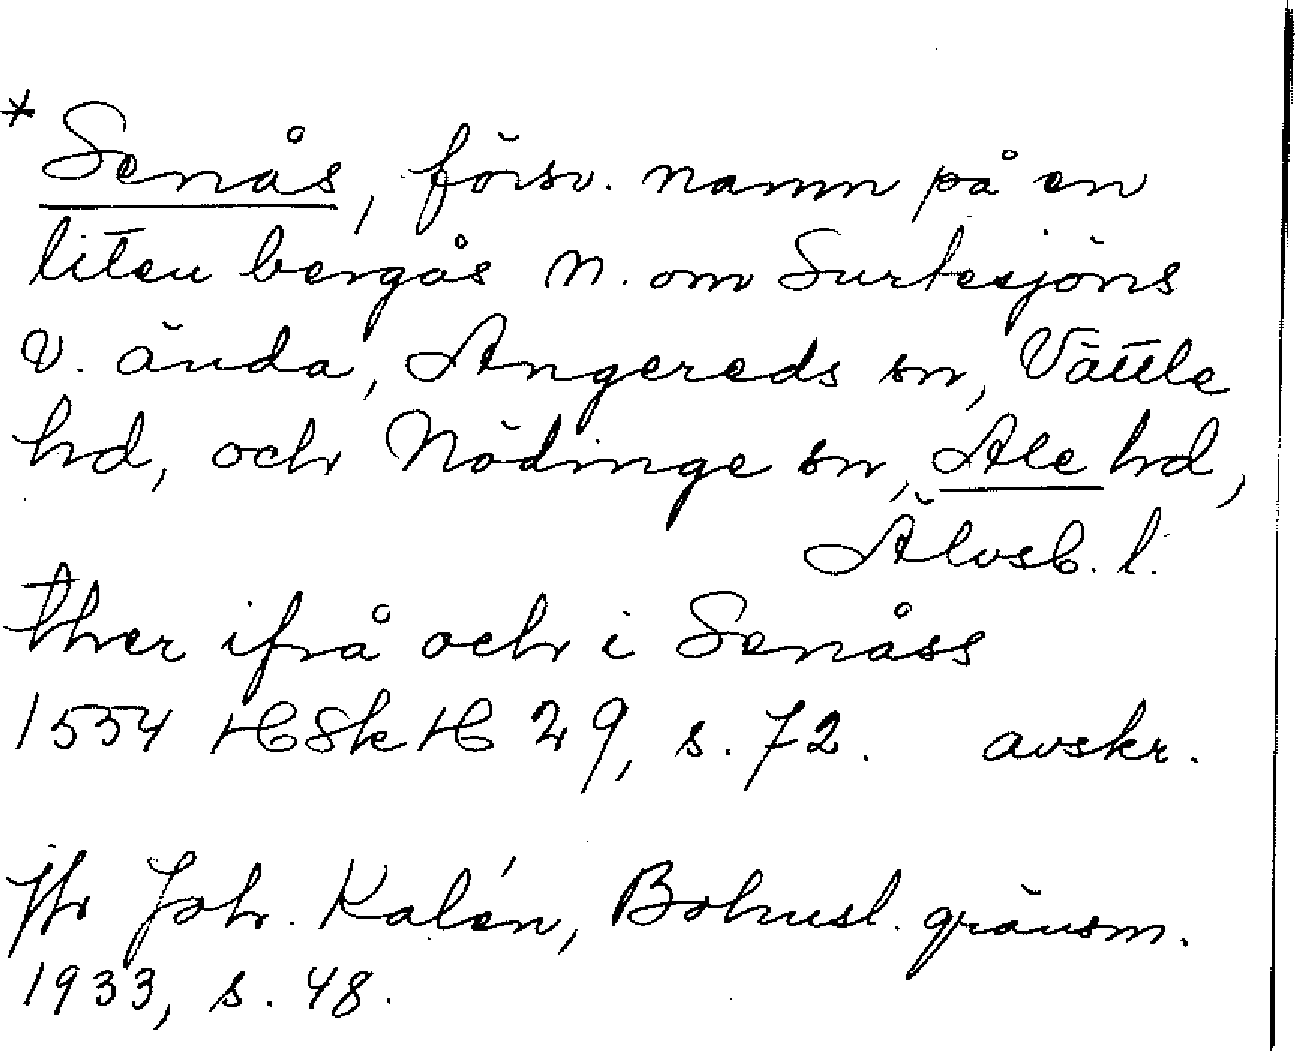 * Senås, försv. namn på en
liten bergås N. om Surtesjöns
V. ända, Angereds sn, Vättle
hd, och Nödinge sn, Ale hd,
Älvsb. l.
ther ifrå och i Senåss
1554 HSkH 29, s. 72. avskr.
Jfr Joh. Kalén, Bohusl. gränsm.
1933, s. 48.